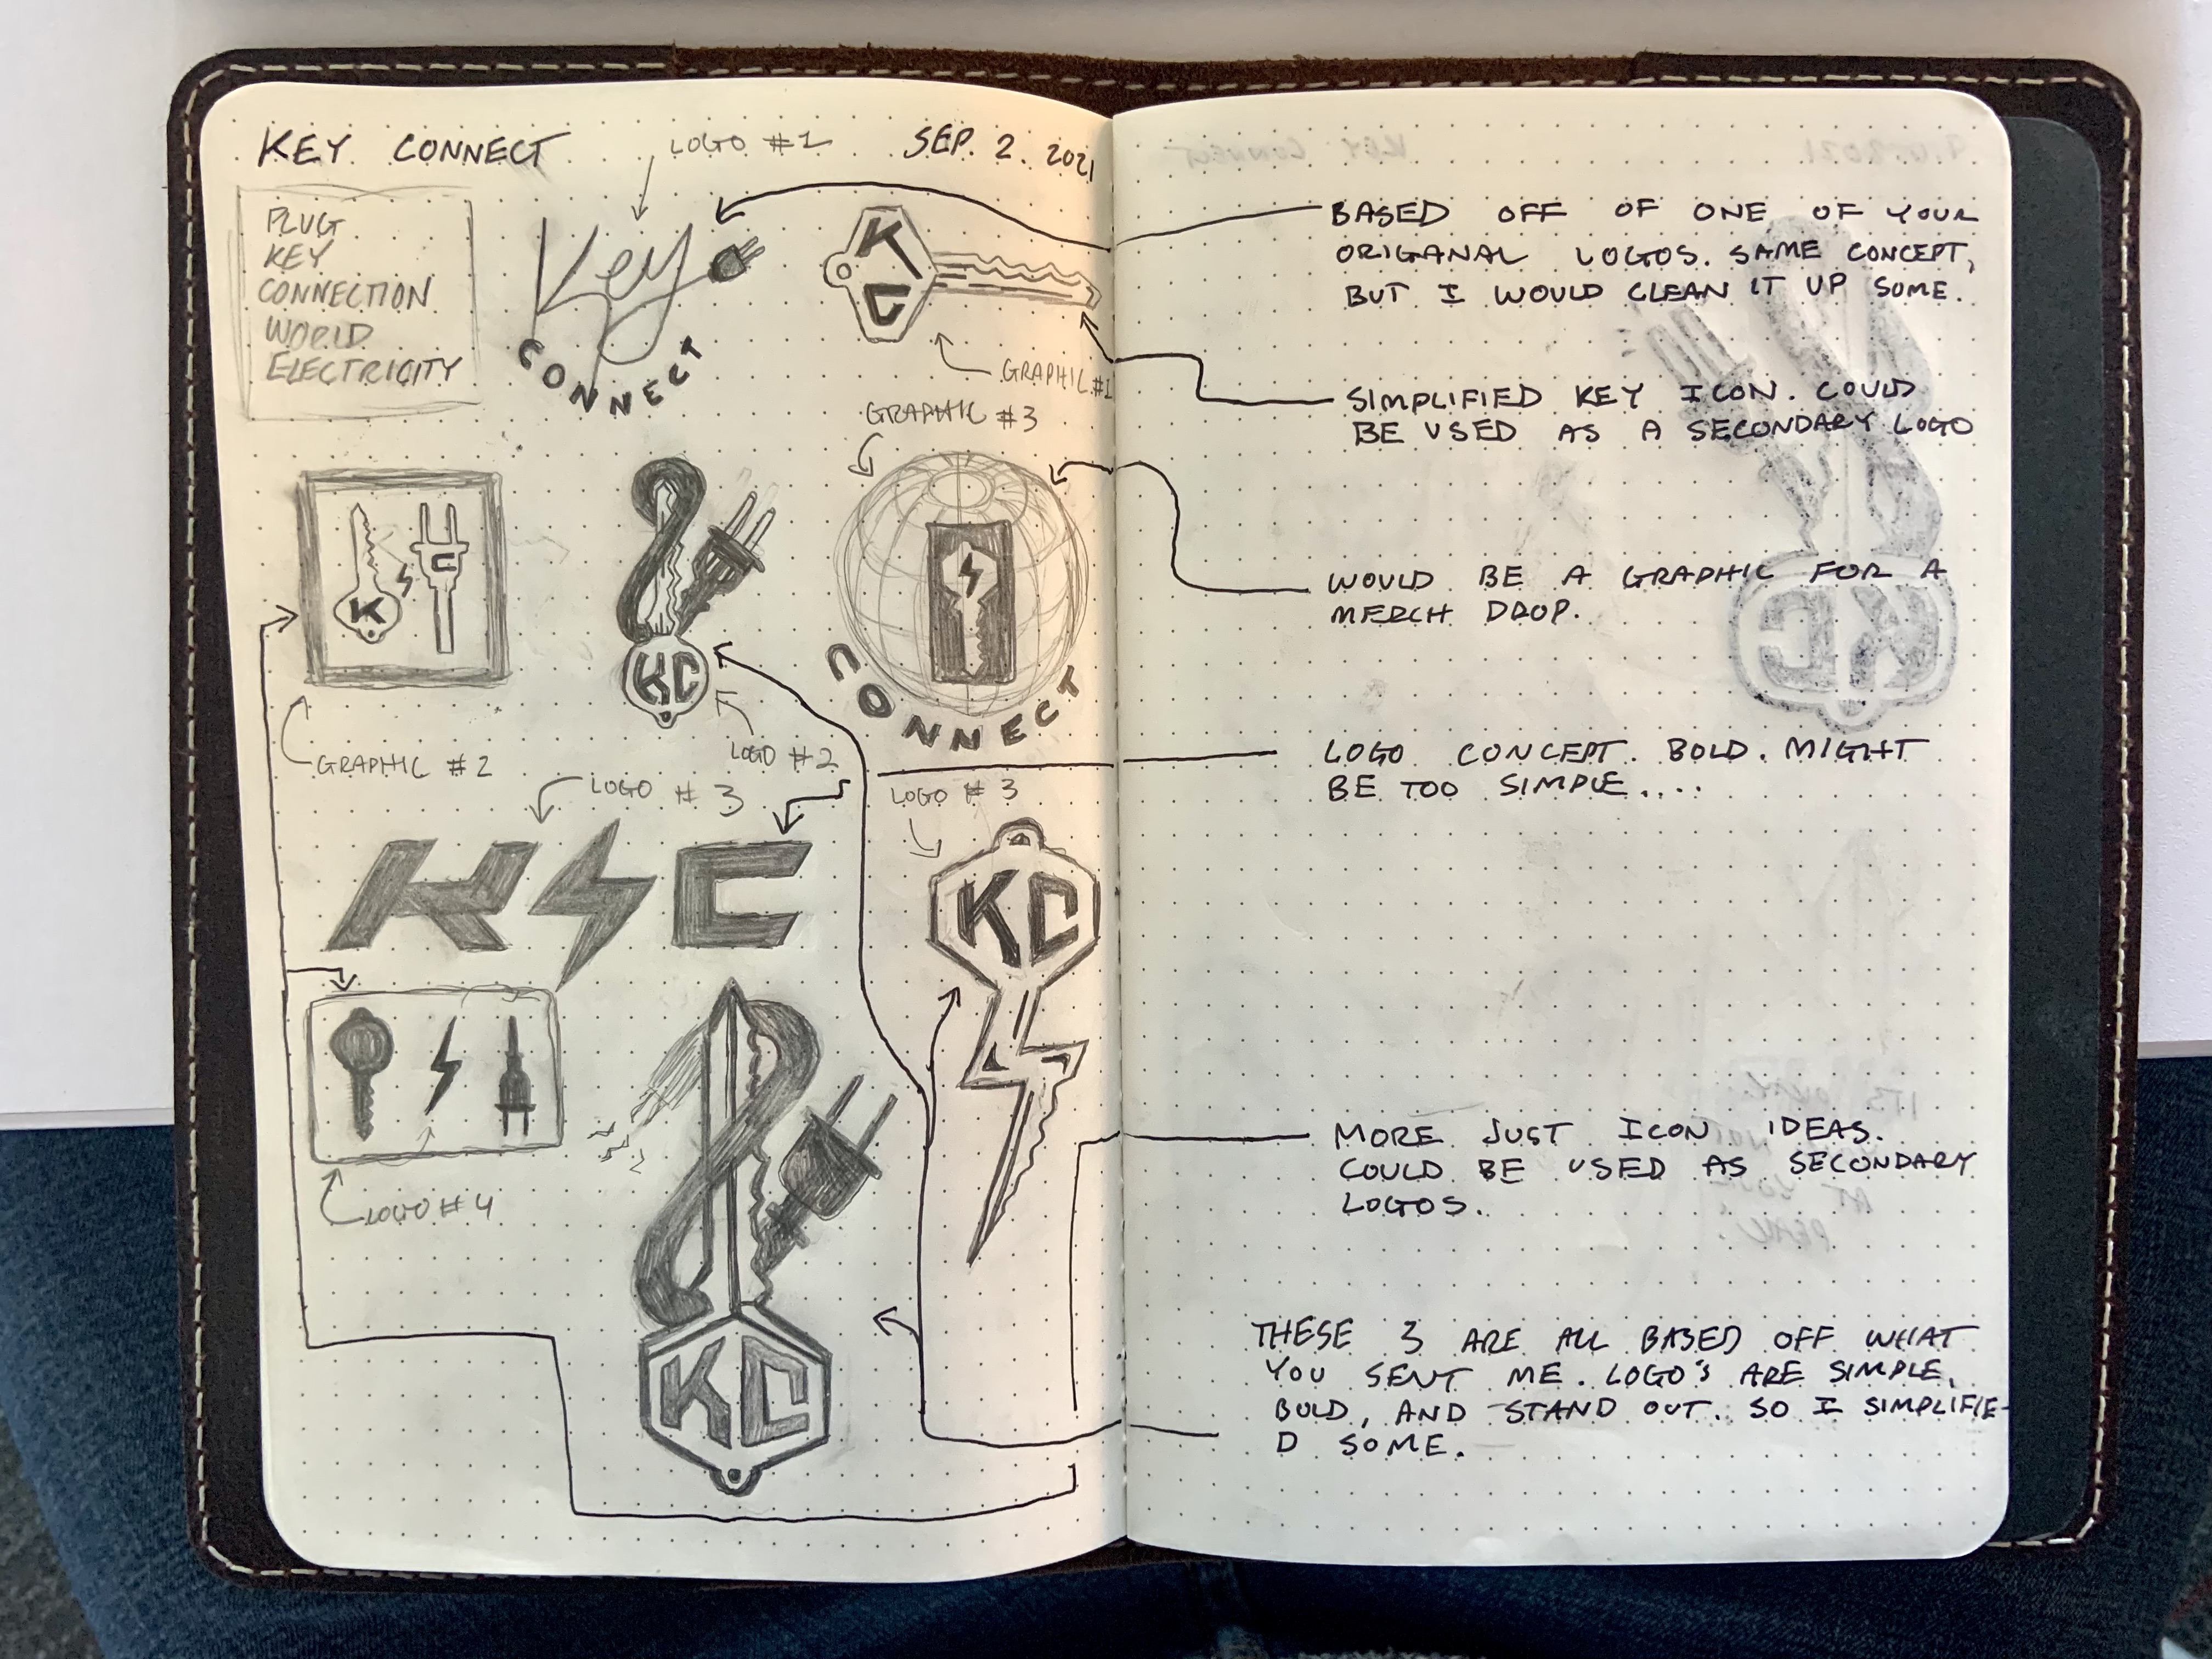 KEY CONNECT
LOGO #1
SEP. 2. 2021
PLUG
KEY
CONNECTION
WORLD
ELECTRICITY
Key
CONNECT
K
C
GRAPHIC #1
GRAPHIC #3
K
C
KC
CONNECT
GRAPHIC #2
LOGO #2
LOGO # 3
LOGO # 3
K C
KC
LOGO # 4
KC
BASED OFF OF ONE OF YOUR
ORIGANAL LOGOS. SAME CONCEPT,
BUT I WOULD CLEAN IT UP SOME.
SIMPLIFIED KEY ICON. COULD
BE USED AS A SECONDARY LOGO
WOULD BE A GRAPHIC FOR A
MERCH DROP.
LOGO CONCEPT. BOLD. MIGHT
BE TOO SIMPLE....
MORE JUST ICON IDEAS.
COULD BE USED AS SECONDARY
LOGOS.
THESE 3 ARE ALL BASED OFF WHAT
YOU SENT ME. LOGO'S ARE SIMPLE,
BOLD, AND STAND OUT. SO I SIMPLIFIE-
D SOME.